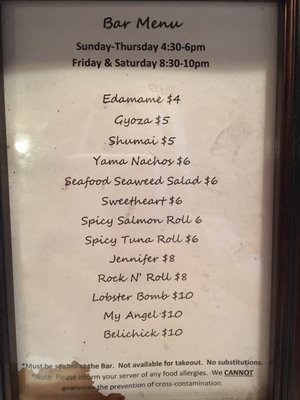 Bar Menu
Sunday-Thursday 4:30-6pm
Friday & Saturday 8:30-10pm
Edamame $4
Gyoza $5
Shumai $5
Yama Nachos $6
Seafood Seaweed Salad $6
Sweetheart $6
Spicy Salmon Roll 6
Spicy Tuna Roll $6
Jennifer $8
Rock N' Roll $8
Lobster Bomb $10
My Angel $10
Belichick $10
*Must be seated at the Bar. Not available for takeout. No substitutions.
*Note: Please inform your server of any food allergies. We CANNOT
guarantee the prevention of cross-contamination.